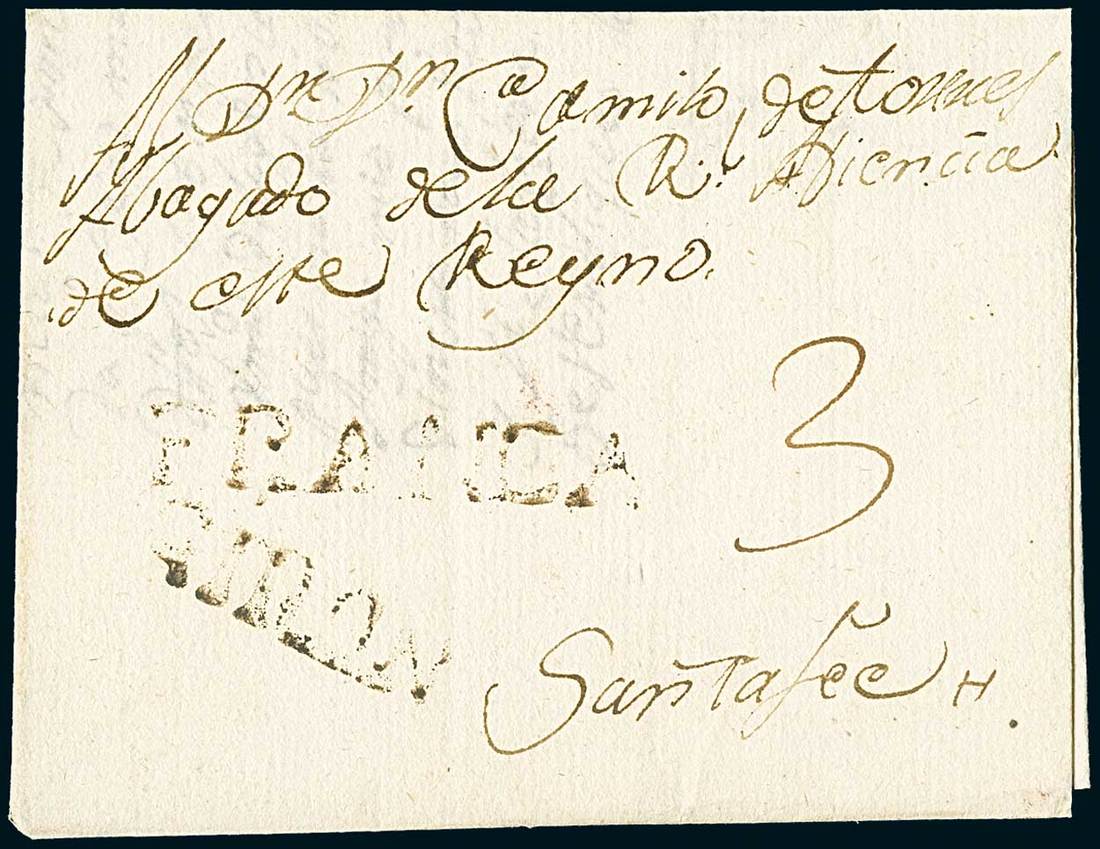 Al Dr. Dn. Camilo de torres
Abogado de la Rl. Audiencia
de este Reyno.
FRANCA
3
GIRON
Santafee